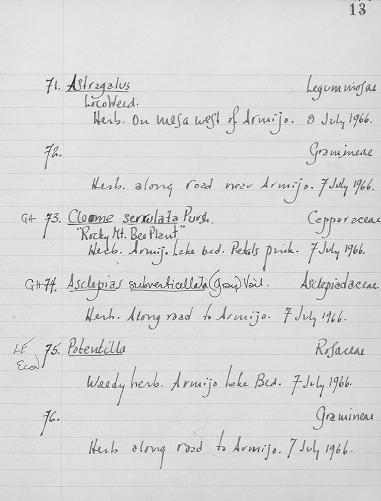 13
71. Astragalus Leguminosae
Locoweed.
Herb. On mesa west of Armijo. 8 July 1966.
72. Gramineae
Herb. along road near Armijo. 7 July 1966.
GH 73. Cleome serrulata Pursh. Capparaceae
"Rocky Mt. Bee Plant"
Herb. Armijo Lake bed. Petals pink. 7 July 1966.
GH 74. Asclepias subverticillata (Gray) Vail. Asclepiadaceae
Herb. Along road to Armijo. 7 July 1966.
LE 75. Potentilla Rosaceae
Eco
Weedy herb. Armijo Lake Bed. 7 July 1966.
76. Gramineae
Herb along road to Armijo. 7 July 1966.